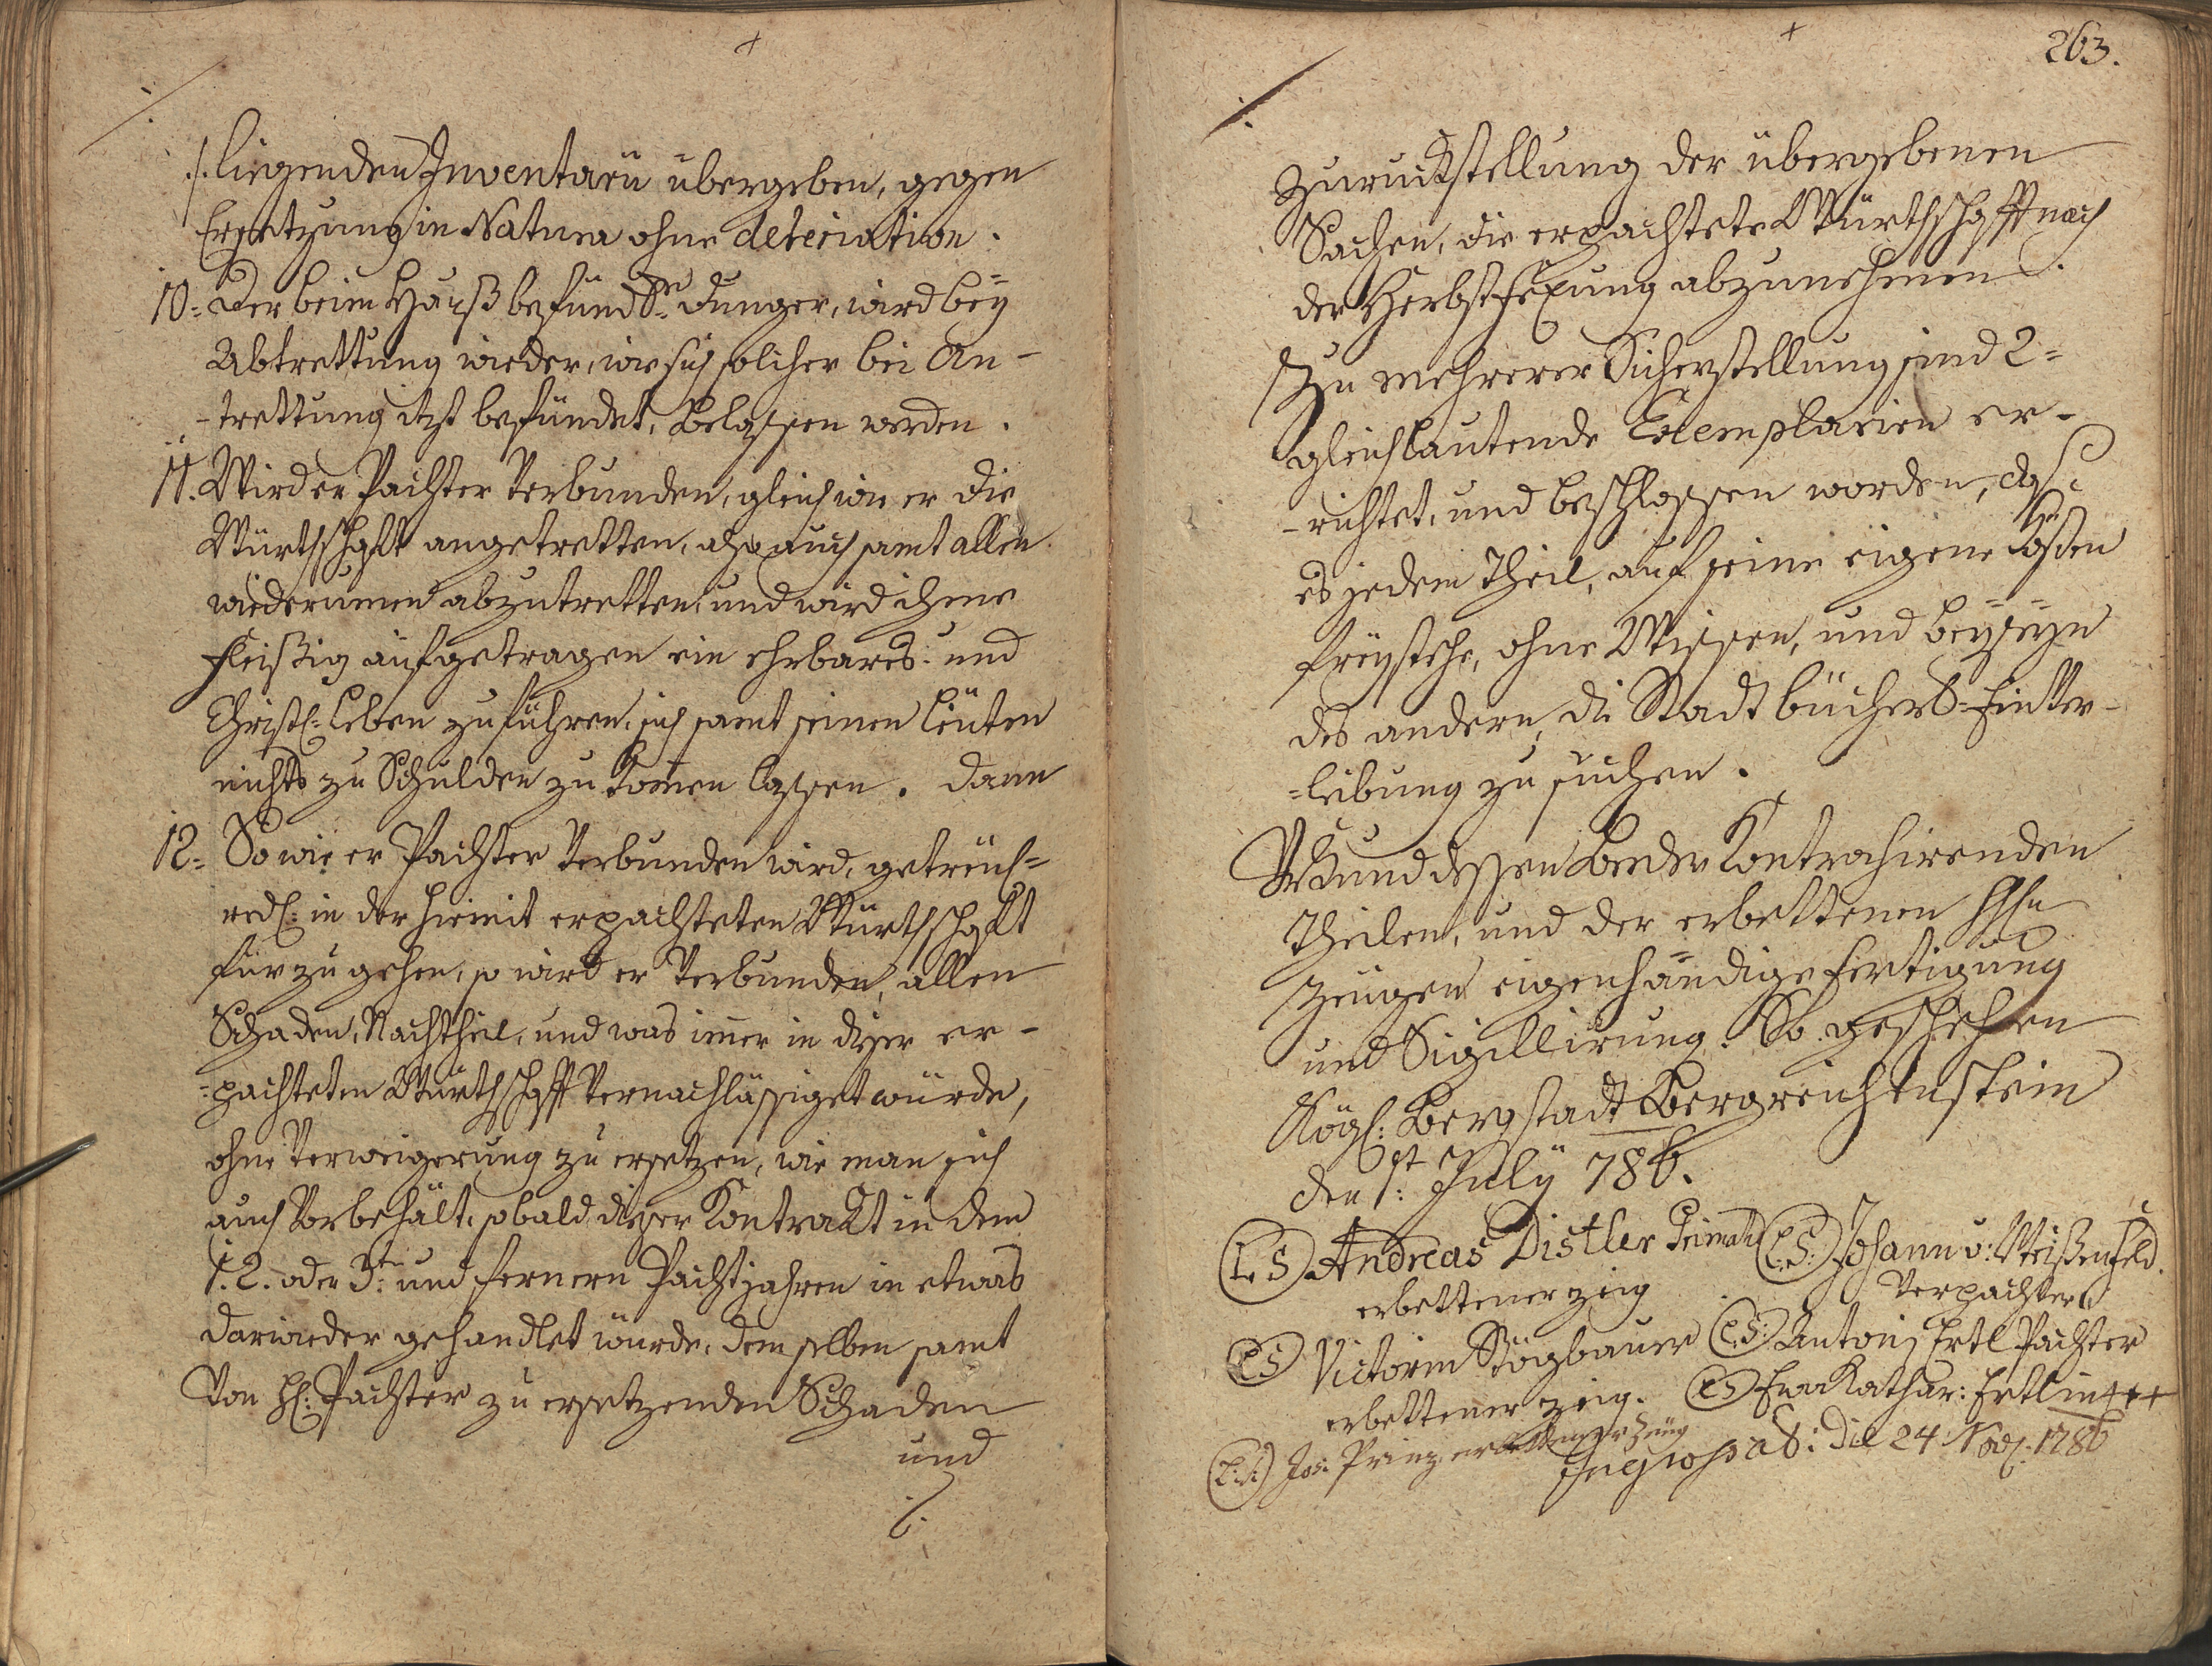 ./. liegenden Inventarii übergeben, gegen
Ersetzung in Natura ohne deteriation.
10= Der beim Hauß befündl: Dunger, wird bey
Abtrettung wieder, wie sich solcher bei An-
-trettung itzt befündet, belassen werden.
11. Wird er Pachter verbunden, gleich wie er die
Würthschaft angetretten, also auch samt allen
wiederumen abzutretten, und wird ihme
fleißig aufgetragen ein ehrbares- und
Christl: Leben zu führen, sich samt seinen Leuten
nichts zu Schulden zu komen lassen. Dann
12= So wie er Pachter verbunden wird, getreu=
redl: in der hiemit erpachteten Würthschaft
fürzugehen, so wird er verbunden, allen
Schaden, Nachtheil, und was imer in dieser er-
=pachteten Würthschafft vernachlässiget würde,
ohne Verweigerung zu ersetzen, wie man sich
auch Vorbehält, sobald dieser Kontrakt in dem
1. 2. oder 3t: und fernern Pachtjahren in etwas
darwieder gehandlet würde, demselben samt
Von H: Pachter zu ersetzenden Schaden
und
./.
263.
Zuruckstellung der übergebenen
Sachen, die erpachtete Würthschafft nach
der Herbstfexung abzunehmen.
Zu mehrerer Sicherstellung sind 2=
gleichlautende Exemplarien er-
-richtet, und beschlossen worden, das
es jedem Theil, auf seine eigene Kösten
freystehe, ohne Wissen, und beyseyn
des andern, die Stadtbüchers=Einver-
=leibung zu suchen.
Urkund dessen beeder Kontrahirenden
Theilen, und der erbettenen
Zeugen eigenhändige Fertigung
und Sigillirung. So geschehen
Kögl: Bergstadt Bergreichenstein
den 1t: July 786.
(L.S) Andreas Distler (L.S:) Johann v: Weißenfeld.
erbettener zeig Verpachter
(L.S) Victorin Stögbauer (L.S:) Antoni Ertl Pachter
erbettener zeig. (L.S) Eva Kathar: Ertlin +++
(L:S:) Jos: Prinz erbettener Zeüg
Die 24 Nov: 1786